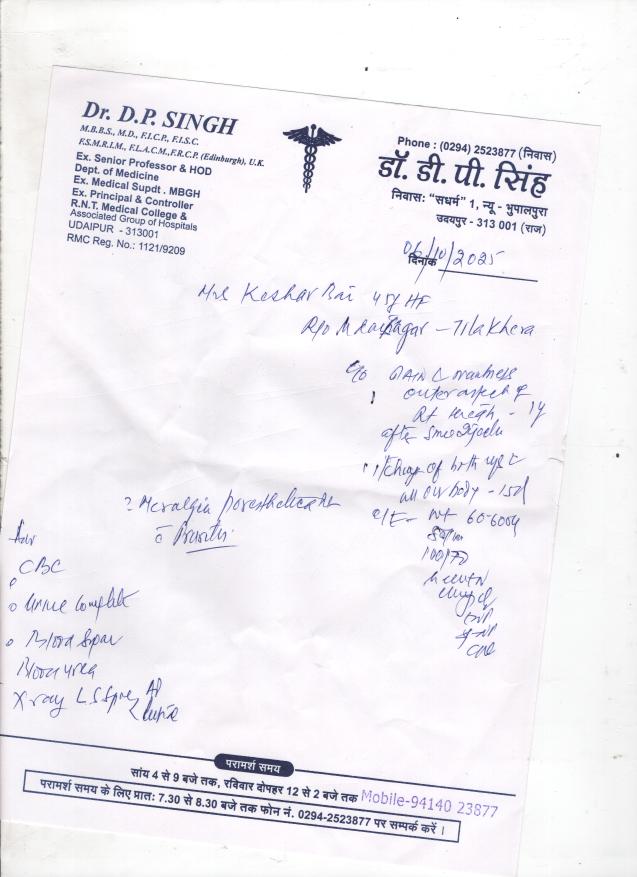 Dr. D.P. SINGH
M.B.B.S., M.D., F.I.C.P., F.I.S.C.
F.S.M.R.I.M., F.L.A.C.M., F.R.C.P. (Edinburgh), U.K.
Ex. Senior Professor & HOD
Dept. of Medicine
Ex. Medical Supdt. MBGH
Ex. Principal & Controller
R.N.T. Medical College &
Associated Group of Hospitals
UDAIPUR - 313001
RMC Reg. No.: 1121/9209
Phone : (0294) 2523877 (निवास)
डॉ. डी. पी. सिंह
निवास: "सधर्म" 1, न्यू - भुपालपुरा
उदयपुर - 313 001 (राज)
दिनांक 06/10/2025
Keshar Bai 45y HF
R/o - Tilakhera
c/o PAIN
outer aspect of
Rt thigh - 1y
after
Itching of both
all over body - 15d
O/E - wt
100/70
? Meralgia paresthetica
c Pruritis.
Adv
CBC
Urine Complete
Blood Sugar
Blood urea
X-ray L S Spine AP
परामर्श समय
सांय 4 से 9 बजे तक, रविवार दोपहर 12 से 2 बजे तक Mobile-94140 23877
परामर्श समय के लिए प्रात: 7.30 से 8.30 बजे तक फोन नं. 0294-2523877 पर सम्पर्क करें ।